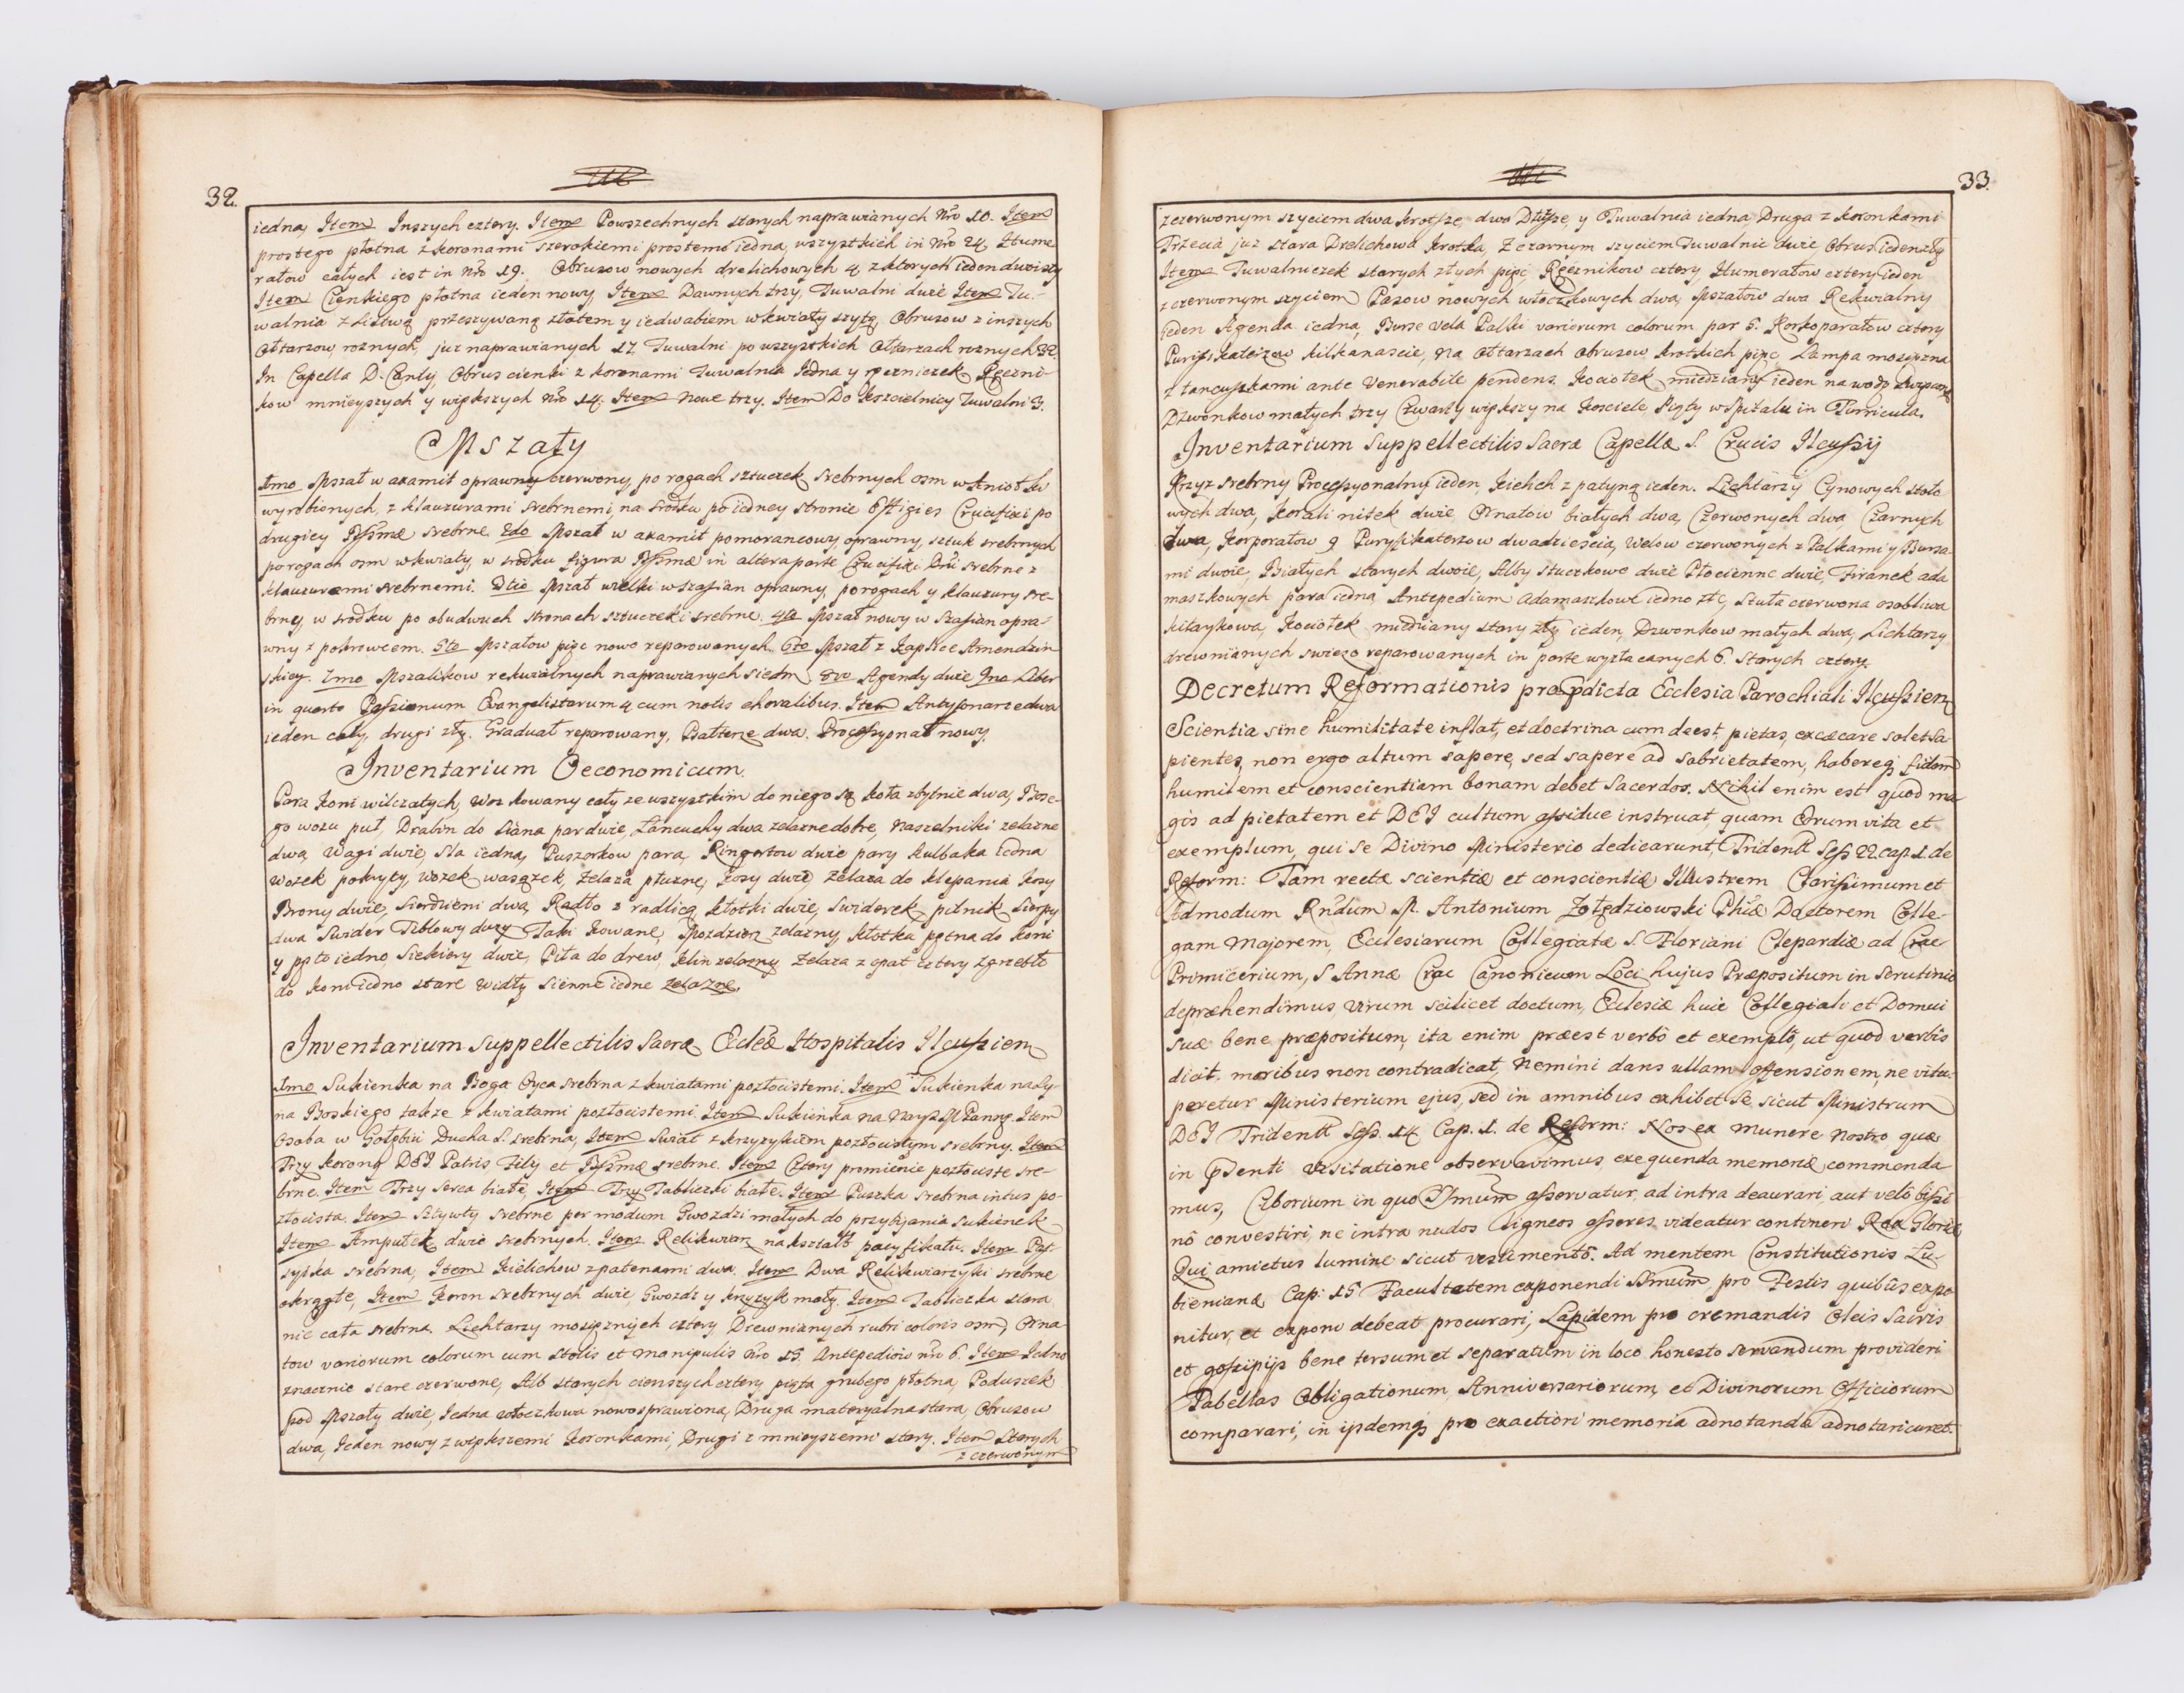 32.
iedna, Item Inszych cztery. Item Powszechnych starych naprawianych Nro 10. Item
prostego płotna z koronami szerokiemi prostemi iedna, wszystkich in Nro 24, Hume
rałow całych iest in Nro 19. Obrusow nowych drelichowych 4 z ktorych ieden dwoisty
Item Cienkiego płotna ieden nowy, Item Dawnych trzy, Tuwalni dwie Item Tu-
walnia z Listwą przeszywaną złotem y iedwabiem w kwiaty szytą, Obrusow z inszych
Ołtarzow roznych, juz naprawianych 17 Tuwalni po wszystkich Ołtarzach roznych 32.
In Capella D. Canty, Obrus cienki z koronami Tuwalnia Jedna y ręczniczek Ręczni-
kow mnieyszych y większych Nro 14. Item Nowe trzy. Item Do Kszcielnicy Tuwalni 3.
Mszały
1mo Mszał w axamit oprawny czerwony, po rogach sztuczek srebrnych osm w Aniołki
wyrobionych, z klauzurami srebrnemi, na srodku po iedney stronie Effigies Crucifixi po
drugiey Bssmæ srebrne. 2do Mszał w axamit pomorancowy, oprawny, sztuk srebrnych
po rogach osm w kwiaty, w srodku figura Bssmæ in altera parte Crucifixi Dni srebrne z
klauzurami srebrnemi. 3tio Mszał wielki w Szafian oprawny, po rogach y klauzury sre-
brney w srodku po obudwuch stronach sztuczeki srebrne. 4to Mszał nowy w Szafian opra-
wny z pokrowcem. 5to Mszałow pięc nowo reparowanych. 6to Mszał z Kaplice Amendzin
skiey. 7mo Mszalikow rekwialnych naprawianych siedm, 8vo Agendy dwie 9no Liber
in quarto Passionum Evangelistarum 4 cum notis choralibus. Item Antyfonarze dwa
ieden cały, drugi zły. Graduał reparowany, Psałterze dwa. Processyonał nowy.
Inventarium Oeconomicum.
Para Koni wilczatych, Woz kowany cały ze wszystkim do niego są koła zbytnie dwa, Bose-
go wozu puł, Drabin do Siana par dwie, Łancuchy dwa zelazne dobre, Naszelniki zelazne
dwa, Wagi dwie, Sla iedna, Puszorkow para, Ringortow dwie pary Kulbaka iedna
Wozek pokryty, Wozek wasązek, Zelaza płuzne, Kosy dwie Zelaza do klepania Kosy
Brony dwie, Sierdzieni dwa, Radło z radlicą Kłotki dwie, Swiderek, pilnik Sierpy
dwa Swider Tiblowy duzy Taki Kowane, Mozdzierz zelazny, Kłotka pętna do Koni
y pęto iedno, Siekiery dwie, Piła do drew, Klin zelazny Zelaza z opat cztery Zgrzebło
do Koni iedno stare Widły Sienne iedne zelazne.
Inventarium Suppellectilis Sacræ Eccleæ Hospitalis Ilcussien
1mo Sukienka na Boga Oyca srebrna z kwiatami pozłocistemi. Item Sukienka na Sy-
na Boskiego takze z kwiatami pozłocistemi. Item Sukienka na Nays M Pannę. Item
Osoba w Gołębiu Ducha S. srebrna, Item Swiat z krzyzykiem pozłocistym srebrny. Item
Trzy korony DEI Patris Filij et Bssmæ srebrne. Item Cztery promienie pozłociste sre-
brne. Item Trzy Serca białe, Item Trzy Tabliczki białe. Item Puszka srebrna intus po-
złocista. Item Sztywty srebrne per modum Gwozdzi małych do przybijania sukienek
Item Ampułek dwie srebrnych. Item Relikwiarz na kształt pacyfikału. Item Pał-
syłka srebrna, Item Kielichow z patenami dwa. Item Dwa Relikwiarzyki srebrne
okrągłe, Item Koron srebrnych dwie, Gwozdz y krzyzyk mały. Item Tabliczka stara
nie cała srebrna. Lichtarzy mosięznych cztery Drewnianych rubri coloris osm, Orna-
tow variorum colorum cum stolis et manipulis Nro 15. Antepediow Nro 6. Item Jedno
znacznie stare czerwone, Alb starych cienszych cztery, piąta grubego płotna, Poduszek
pod Mszały dwie, Jedna włoczkowa nowo sprawiona, Druga materyalna stara, Obrusow
dwa, Jeden nowy z większemi Koronkami, Drugi z mnieyszemi stary. Item Starych
z czerwonym
33.
z czerwonym szyciem dwa krotsze, dwa Dłuzsze, y Tuwalnia iedna Druga z koronkami
Trzecia juz stara Drelichowa krotka, Z czarnym szyciem Tuwalnie dwie Obrus ieden zły
Item Tuwalniczek starych złych pięc, Ręcznikow cztery Humerałow cztery ieden
z czerwonym szyciem Pasow nowych włoczkowych dwa, Mszałow dwa Rekwialny
ieden Agenda iedna, Burse Vela Palki variorum colorum par 5. Korkoparałow cztery
Puryfikaterzow kilkanascie, na Ołtarzach obrusow krotkich pięc, Lampa mosięzna
z łancuszkami ante Venerabile pendens. Kociołek miedziany ieden na wodę święconą
Dzwonkow małych trzy Czwarty większy na Kosciele Piąty w Szpitalu in Turricula.
Inventarium Suppellectilis Sacræ Capellæ S. Crucis Ilcussij
Krzyz srebrny Processyonalny ieden, Kielich z patyną ieden. Lichtarzy Cynowych stoło
wych dwa, Korali nitek dwie Ornatow białych dwa, Czerwonych dwa Czarnych
dwa, Korporałow 9 Puryfikaterzow dwadziescia, Welow czerwonych z Palkami y Bursa-
mi dwoie, Białych starych dwoie, Alby stuczkowe dwie Płocienne dwie, Firanek ada
maszkowych para iedna Antepedium adamaszkowe iedno złe, Stuła czerwona osobliwa
kitaykowa, Kociołek miedziany stary zły ieden, Dzwonkow małych dwa, Lichtarzy
drewnianych swiezo reparowanych in parte wyzłacanych 6. Starych cztery.
Decretum Reformationis pro pdicta Ecclesia Parochiali Ilcussien
Scientia sine humilitate inflat, et doctrina cum deest pietas, excæcare solet Sa-
pientes, non ergo altum sapere, sed sapere ad sobrietatem, habereq fidem
humilem et conscientiam bonam debet Sacerdos. Nihil enim est quod ma-
gis ad pietatem et DEI cultum assidue instruat, quam Eorum vita et
exemplum, qui se Divino Ministerio dedicarunt, Trident Sess 22 cap. 1. de
Reform: Tam rectæ scientiæ et conscientiæ Illustrem Clarissimum et
Admodum Rndum M. Antonium Zołędziowski Phiæ Doctorem Colle-
gam Majorem, Ecclesiarum Collegiatæ S. Floriani Clepardiæ ad Crac
Primicerium, S Annæ Crac Canonicum Loci hujus Præpositum in Scrutinio
depræhendimus, Virum scilicet doctum, Ecclesiæ huic Collegiali et Domui
suæ bene præpositum, ita enim præest verbo et exemplo, ut quod verbis
dicit, moribus non contradicat, Nemini dans ullam offensionem, ne vitu-
peretur Ministerium ejus, sed in omnibus exhibet se sicut Ministrum
DEI Trident Sess. 14 Cap. 1. de Reform: Nos ex munere nostro, quæ
in psenti Visitatione observavimus, exequenda memoriæ commenda-
mus, Ciborium in quo SSmum asservatur, ad intra deaurari, aut velo bissi
no convestiri, ne intra nudos ligneos asseres videatur contineri Rex Gloriæ
Qui amictus lumine sicut vestimento. Ad mentem Constitutionis Lu-
bienianæ Cap: 15 Facultatem exponendi SSmum pro Festis quibus expo
nitur, et exponi debeat procurari, Lapidem pro cremandis Oleis Sacris
et gossipijs bene tersum et separatum in loco honesto servandum provideri
Tabellas Obligationum, Anniversariorum, et Divinorum Officiorum
comparari, in ijsdemq pro exactiori memoria adnotanda adnotari curet.